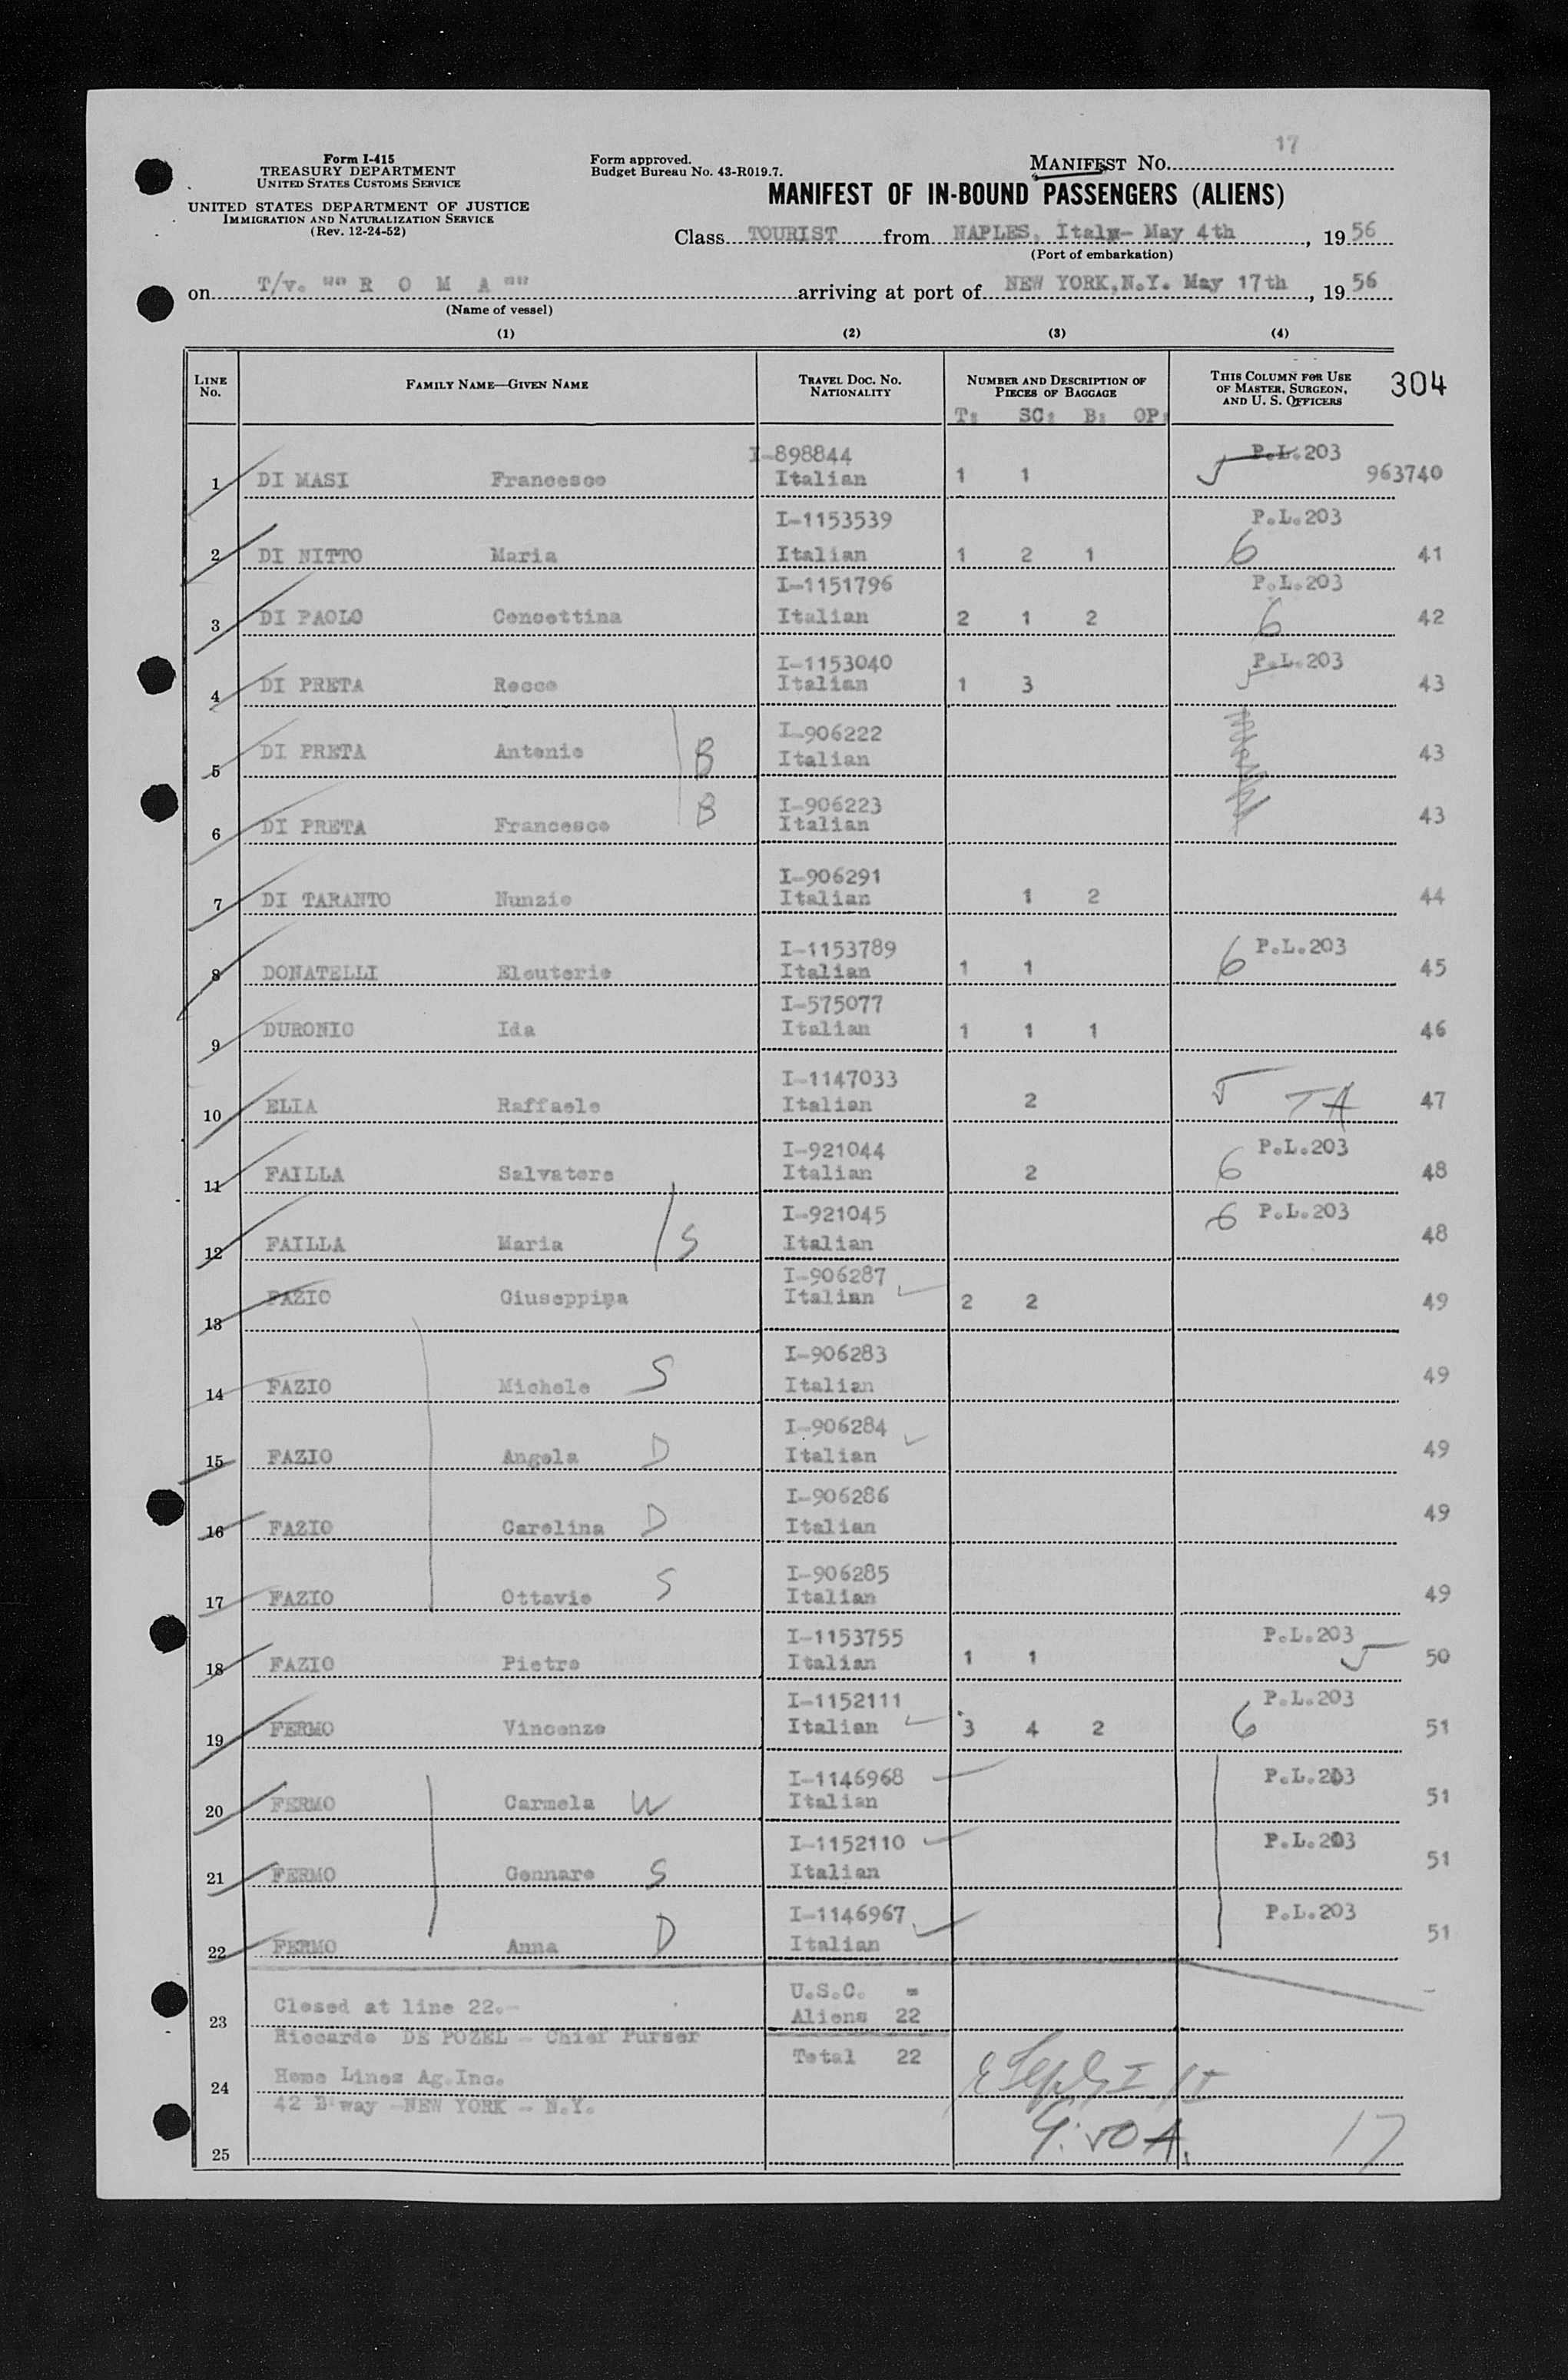 17
Form I-415
TREASURY DEPARTMENT
UNITED STATES CUSTOMS SERVICE
UNITED STATES DEPARTMENT OF JUSTICE
IMMIGRATION AND NATURALIZATION SERVICE
(Rev. 12-24-52)
Form approved.
Budget Bureau No. 43-R019.7.
MANIFEST NO.
MANIFEST OF IN-BOUND PASSENGERS (ALIENS)
Class TOURIST from NAPLES, Italy- May 4th, 1956
(Port of embarkation)
on T/v. "" R O M A "" arriving at port of NEW YORK,N.Y. May 17th, 1956
(Name of vessel)
(1) (2) (3) (4)
LINE NO. FAMILY NAME—GIVEN NAME TRAVEL DOC. NO. NATIONALITY NUMBER AND DESCRIPTION OF PIECES OF BAGGAGE THIS COLUMN FOR USE OF MASTER, SURGEON, AND U. S. OFFICERS 304
T: SC: B: OP:
I-898844 P.L.203
1 DI MASI Francesco Italian 1 1 5 963740
I-1153539 P.L.203
2 DI NITTO Maria Italian 1 2 1 6 41
I-1151796 P.L.203
3 DI PAOLO Concettina Italian 2 1 2 6 42
I-1153040 P.L.203
4 DI PRETA Rocco Italian 1 3 5 43
I-906222
5 DI PRETA Antonio B Italian 43
I-906223
6 DI PRETA Francesco B Italian 43
I-906291
7 DI TARANTO Nunzio Italian 1 2 44
I-1153789 P.L.203
8 DONATELLI Eleuterio Italian 1 1 6 45
I-575077
9 DURONIO Ida Italian 1 1 1 46
I-1147033
10 ELIA Raffaele Italian 2 5 TA 47
I-921044 P.L.203
11 FAILLA Salvatore Italian 2 6 48
I-921045 P.L.203
12 FAILLA Maria S Italian 6 48
I-906287
13 FAZIO Giuseppina Italian 2 2 49
I-906283
14 FAZIO Michele S Italian 49
I-906284
15 FAZIO Angela D Italian 49
I-906286
16 FAZIO Carolina D Italian 49
I-906285
17 FAZIO Ottavio S Italian 49
I-1153755 P.L.203
18 FAZIO Pietro Italian 1 1 5 50
I-1152111 P.L.203
19 FERMO Vincenzo Italian 3 4 2 6 51
I-1146968 P.L.203
20 FERMO Carmela W Italian 51
I-1152110 P.L.203
21 FERMO Gennaro S Italian 51
I-1146967 P.L.203
22 FERMO Anna D Italian 51
U.S.C. =
23 Closed at line 22.- Aliens 22
Riccardo DE POZEL - Chief Purser
Total 22
24 Home Lines Ag.Inc.
42 B'way -NEW YORK - N.Y.
25 17